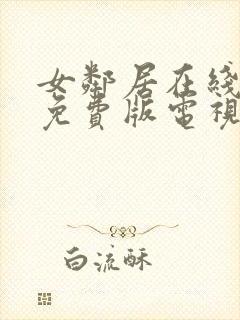 女鄰居在綫
免費版電視
白流酥